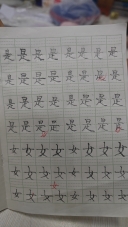 是 是 是 是 是 是 是 是
是 是 是 是 是 是 是 是
是 是 是 是 是 是 是 是
是 是 是 是 是 是 是 是
女 女 女 女 女 女 女 女
女 女 女 女 女 女 女 女
女 女 女 女 女 女 女 女